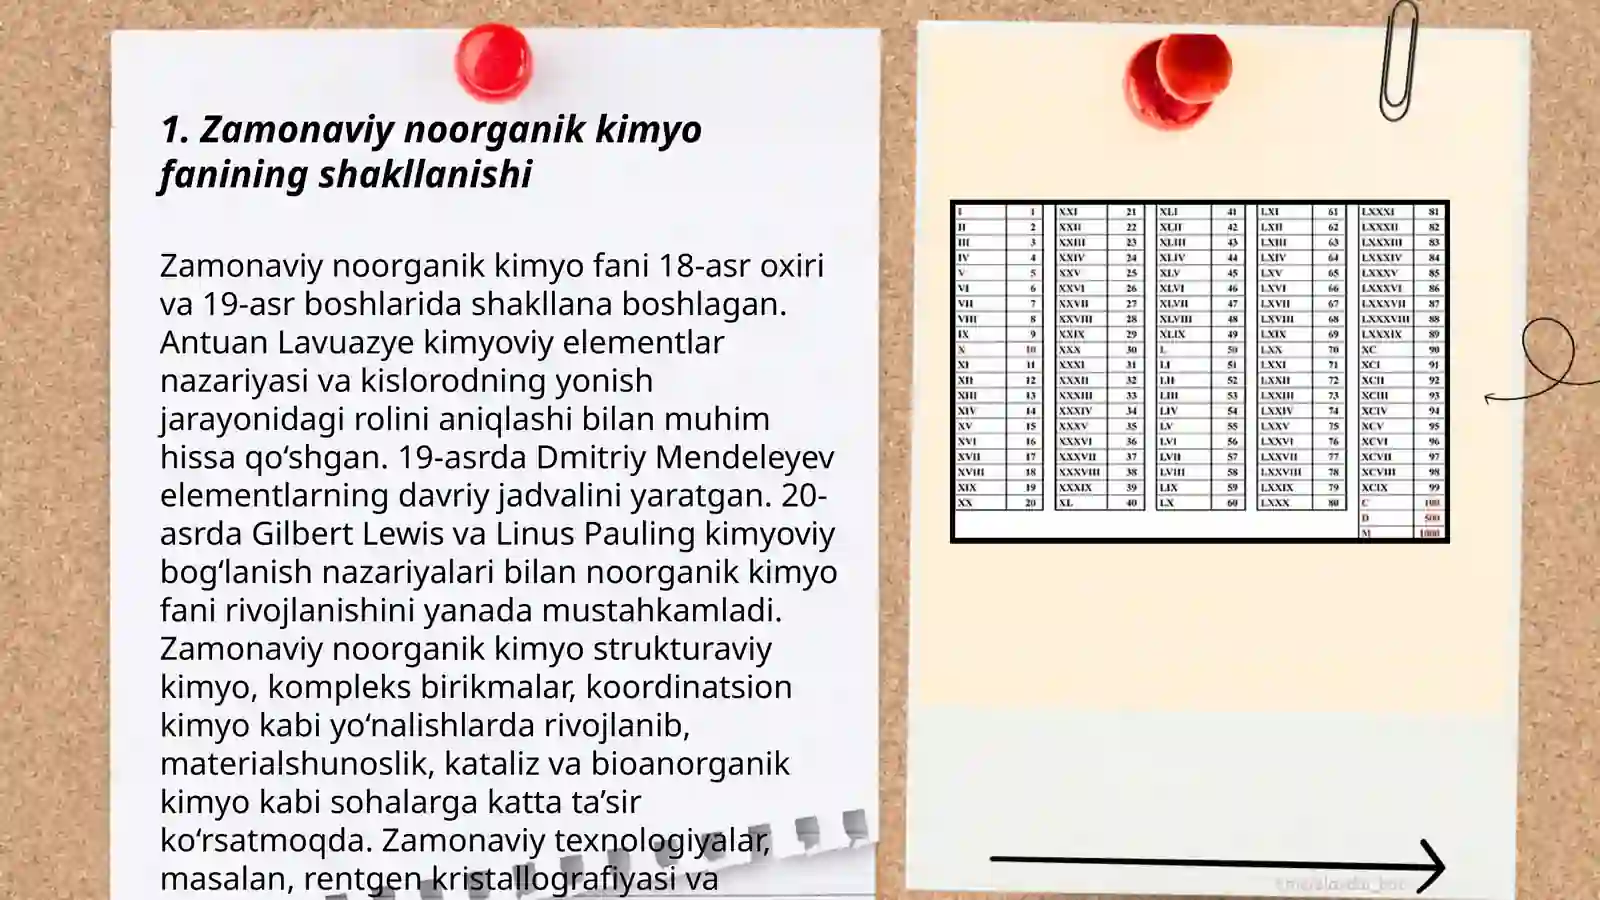 1. Zamonaviy noorganik kimyo
fanining shakllanishi
Zamonaviy noorganik kimyo fani 18-asr oxiri
va 19-asr boshlarida shakllana boshlagan.
Antuan Lavuazye kimyoviy elementlar
nazariyasi va kislorodning yonish
jarayonidagi rolini aniqlashi bilan muhim
hissa qo‘shgan. 19-asrda Dmitriy Mendeleyev
elementlarning davriy jadvalini yaratgan. 20-
asrda Gilbert Lewis va Linus Pauling kimyoviy
bog‘lanish nazariyalari bilan noorganik kimyo
fani rivojlanishini yanada mustahkamladi.
Zamonaviy noorganik kimyo strukturaviy
kimyo, kompleks birikmalar, koordinatsion
kimyo kabi yo‘nalishlarda rivojlanib,
materialshunoslik, kataliz va bioanorganik
kimyo kabi sohalarga katta ta’sir
ko‘rsatmoqda. Zamonaviy texnologiyalar,
masalan, rentgen kristallografiyasi va
I 1 XXI 21 XLI 41 LXI 61 LXXXI 81
II 2 XXII 22 XLII 42 LXII 62 LXXXII 82
III 3 XXIII 23 XLIII 43 LXIII 63 LXXXIII 83
IV 4 XXIV 24 XLIV 44 LXIV 64 LXXXIV 84
V 5 XXV 25 XLV 45 LXV 65 LXXXV 85
VI 6 XXVI 26 XLVI 46 LXVI 66 LXXXVI 86
VII 7 XXVII 27 XLVII 47 LXVII 67 LXXXVII 87
VIII 8 XXVIII 28 XLVIII 48 LXVIII 68 LXXXVIII 88
IX 9 XXIX 29 XLIX 49 LXIX 69 LXXXIX 89
X 10 XXX 30 L 50 LXX 70 XC 90
XI 11 XXXI 31 LI 51 LXXI 71 XCI 91
XII 12 XXXII 32 LII 52 LXXII 72 XCII 92
XIII 13 XXXIII 33 LIII 53 LXXIII 73 XCIII 93
XIV 14 XXXIV 34 LIV 54 LXXIV 74 XCIV 94
XV 15 XXXV 35 LV 55 LXXV 75 XCV 95
XVI 16 XXXVI 36 LVI 56 LXXVI 76 XCVI 96
XVII 17 XXXVII 37 LVII 57 LXXVII 77 XCVII 97
XVIII 18 XXXVIII 38 LVIII 58 LXXVIII 78 XCVIII 98
XIX 19 XXXIX 39 LIX 59 LXXIX 79 XCIX 99
XX 20 XL 40 LX 60 LXXX 80 C 100
D 500
M 1000